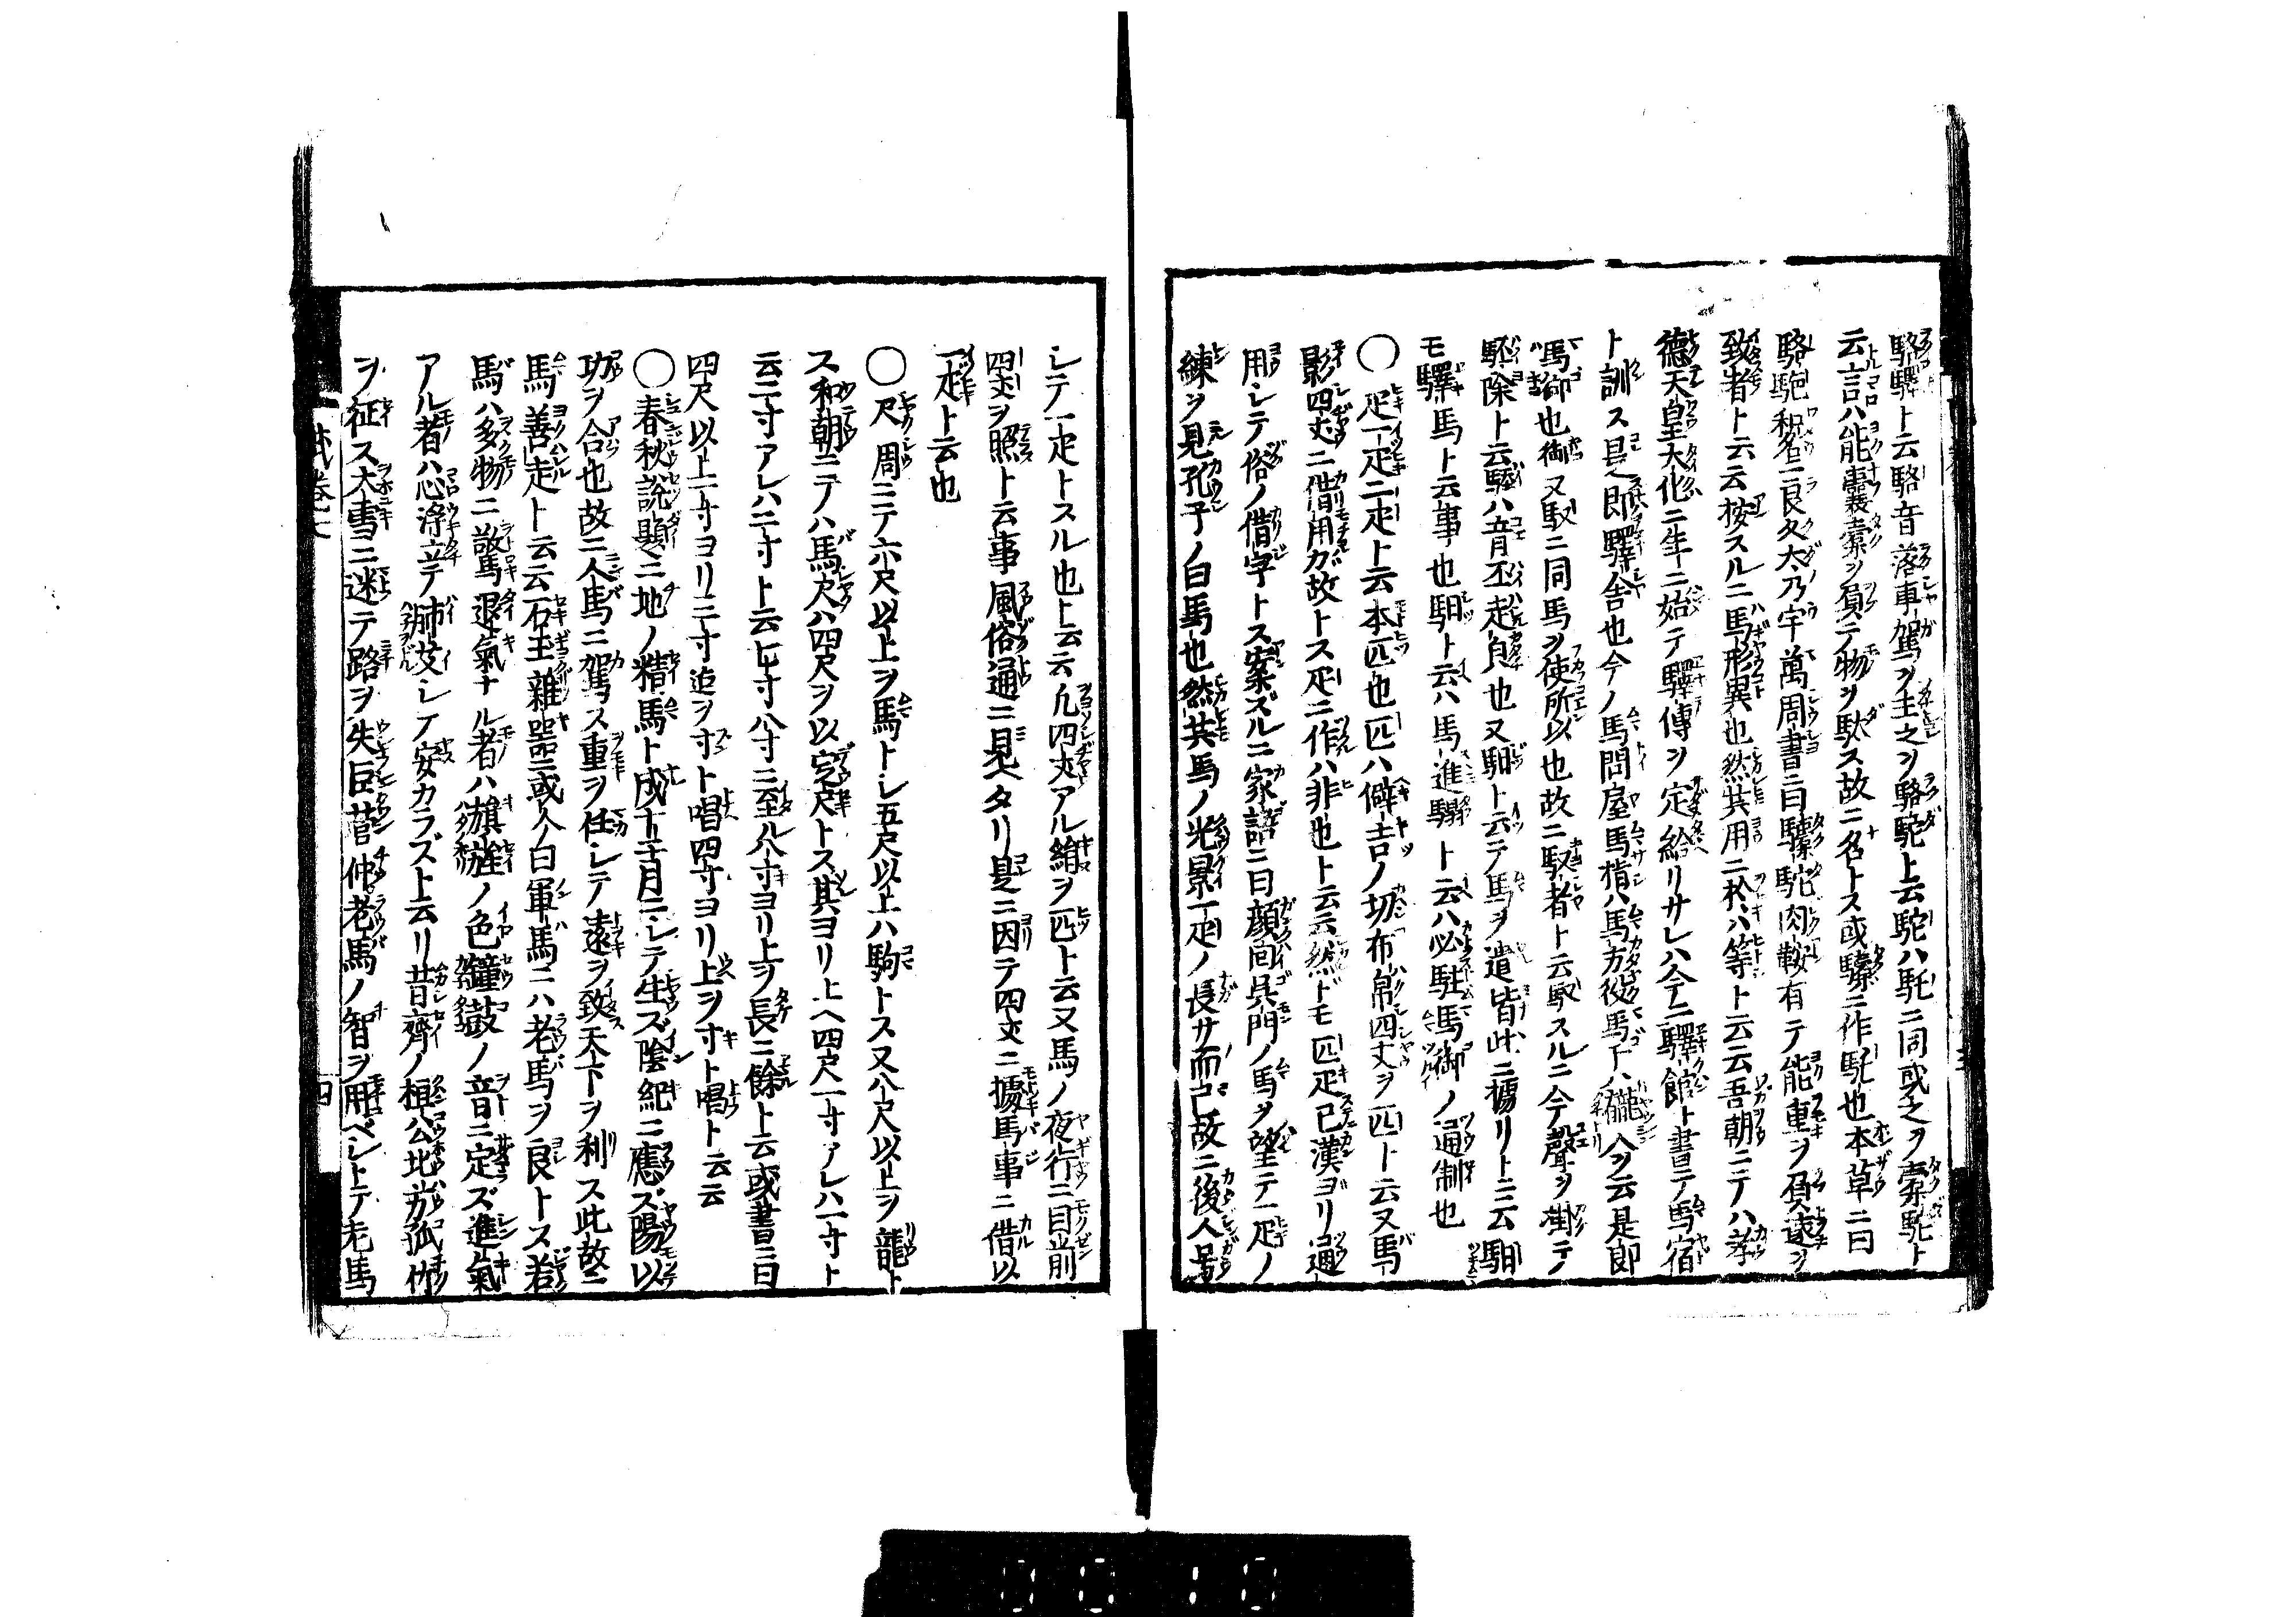 駱驛ト云駱音落車駕ヲ主之ヲ駱駝ト云駝ハ駞ニ同或之ヲ槖駝ト
云言ハ能嚢槖ヲ負テ物ヲ馱ス故ニ名トス或驝ニ作駞也本草ニ曰
駱駞釈名ニ良久大乃宇萬周書ニ曰驝駝肉鞍有テ能重ヲ負遠ヲ
致者ト云云按スルニ馬形異也然共用ニ於ハ等ト云云吾朝ニテハ孝
德天皇大化二年ニ始テ驛傳ヲ定給リサレハ今ニ驛館ト書テ馬宿
ト訓ス是即驛舎也今ノ馬問屋馬指ハ馬方役馬ト云是即
馬御也御又馭ニ同馬ヲ使所以也故ニ馭者ト云馭スルニ今聲ヲ掛テ
駓除ト云駓ハ音丕起負也又馹ト云テ馬ヲ遣皆此ニ據リト云馹
モ驛馬ト云事也馹ト云ハ馬進驟ト云ハ必駐馬御ノ通制也
〇疋一疋二疋ト云本匹也匹ハ僻吉ノ切布帛四丈ヲ一匹ト云又馬
影四丈ニ借用ガ故トス疋ニ作ハ非也ト云云然ドモ匹疋已漢ヨリ通
用シテ俗ノ借字トス案ズルニ家語ニ曰顔回呉門ノ馬ヲ望ミテ一疋ノ
練ヲ見孔子ノ曰馬也然共馬ノ光景一疋ノ長サ而已故ニ後人号
シテ一疋トスル也ト云云凢四丈アル絹ヲ一匹ト云又馬ノ夜行ニ目前
四丈ヲ照ト云事風俗通ニ見ヘタリ是ニ因テ四丈ニ據馬事ニ借以
一疋ト云也
〇尺周ニテ六尺以上ヲ馬トシ五尺以上ハ駒トス又八尺以上ヲ龍ト
ス和朝ニテハ馬尺ハ四尺ヲ以定尺トス其ヨリ上ヘ四尺一寸アレハ一寸ト
云二寸アレハ二寸ト云七寸八寸ニ至ル八寸ヨリ上ヲ長ニ餘ト云或書ニ曰
四尺以上一寸ヨリ三寸迄ヲ寸ト唱四寸ヨリ上ヲ寸ト唱ト云云
〇春秋説題ニ地ノ精馬ト成十二月ニシテ生ズ陰紀ニ應ズ陽以
功ヲ合也故ニ人馬ニ駕ス重ヲ任シテ遠ヲ致天下ヲ利ス此故ニ
馬善走ト云云石室雜噐ニ或人ノ曰軍馬ニハ老馬ヲ良トス若
馬ハ多物ニ驚退氣ナル者ハ旗旌ノ色鐘鼓ノ音ニ定ズ進氣
アル者ハ心浮立テ肺シテ安カラズト云リ昔齊ノ桓公北方孤竹
ヲ征ス大雪ニ迷テ路ヲ失臣菅仲老馬ノ智ヲ用ベシトテ老馬
四